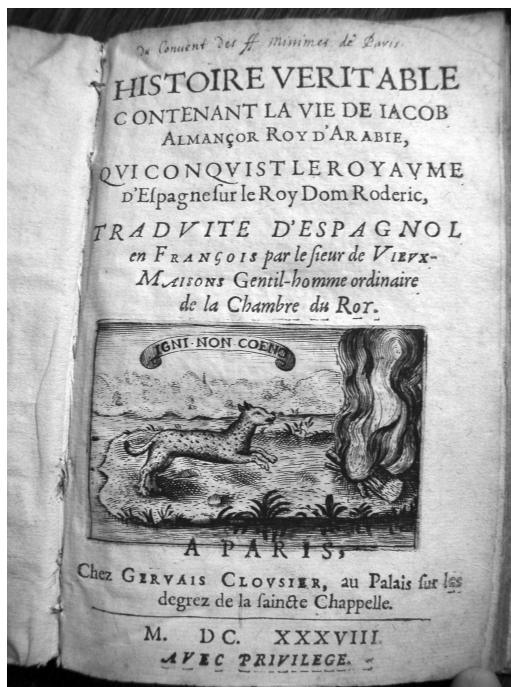 Du Convent des ff minimes de Paris.
HISTOIRE VERITABLE
CONTENANT LA VIE DE IACOB
ALMANÇOR ROY D'ARABIE,
QVI CONQVIST LE ROYAVME
D'Eſpagne ſur le Roy Dom Roderic,
TRADVITE D'ESPAGNOL
en FRANÇOIS par le ſieur de VIEVX-
MAISONS Gentil-homme ordinaire
de la Chambre du ROY.
IGNI·NON·COENO
A PARIS,
Chez GERVAIS CLOVSIER, au Palais ſur les
degrez de la ſaincte Chappelle.
M. DC. XXXVIII.
AVEC PRIVILEGE.